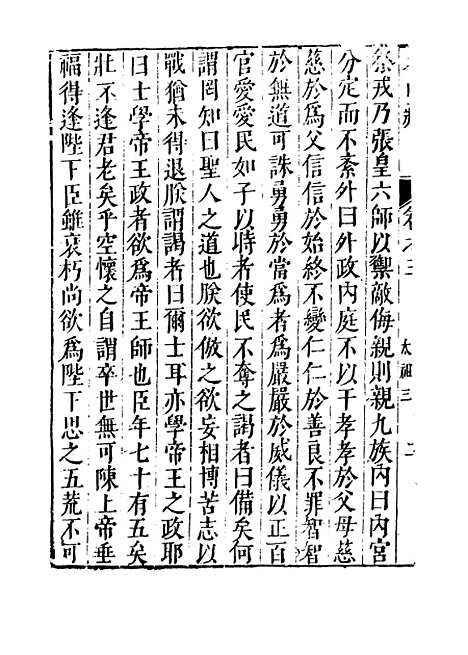 卷之三 太祖三 二
祭戎乃張皇六師以禦敵侮親則親九族內曰內宮
分定而不紊外曰外政內庭不以干孝孝於父母慈
慈於爲父信信於始終不變仁仁於善良不罪智智
於無道可誅勇勇於當爲者爲嚴嚴於威儀以正百
官愛愛民如子以時者使民不奪之謁者曰備矣何
謂罔知曰聖人之道也朕欲倣之欲妄相博苦志以
戰猶未得退朕謂謁者曰爾士耳亦學帝王之政耶
曰士學帝王政者欲爲帝王師也臣年七十有五矣
壯不逢君老矣乎空懷之自謂卒世無可陳上帝垂
福得逢陛下臣雖衰朽尚欲爲陛下思之五荒不可